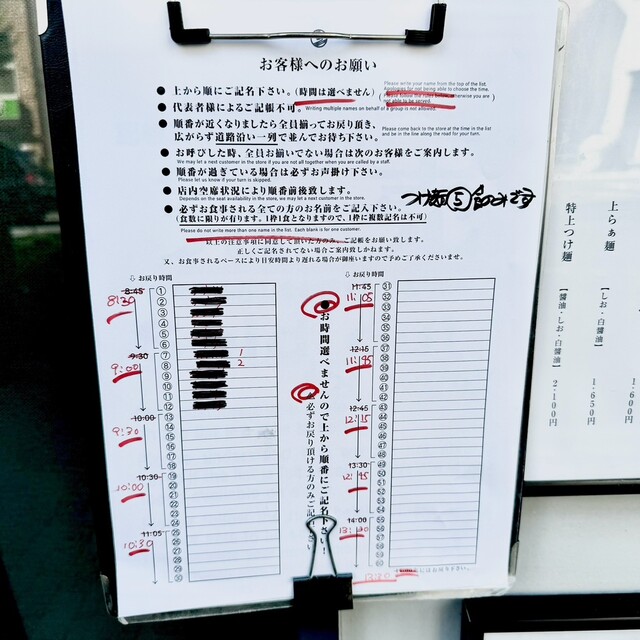 お客様へのお願い
● 上から順にご記名下さい。(時間は選べません)
Please write your name from the top of the list.
Apologies for not being able to choose the time.
● 代表者様によるご記帳不可。
Writing multiple names on behalf of a group is not allowed.
not able to be served.
● 順番が近くなりましたら全員揃ってお戻り頂き、
広がらず道路沿い一列で並んでお待ち下さい。
Please come back to the store at the time in the list
and be in the line along the road for your turn.
● お呼びした時、全員お揃いでない場合は次のお客様をご案内します。
We may let a next customer in the store if you are not all together when you are called by a staff.
● 順番が過ぎている場合は必ずお声掛け下さい。
Please let us know if your turn is skipped.
● 店内空席状況により順番前後致します。
Depends on the seat availability in the store, we may let a next customer in the store.
● 必ずお食事される全ての方のお名前をご記入下さい。
(食数に限りが有ります。1枠1食となりますので、1枠に複数記名は不可)
Please do not write more than one name in the list. Each blank is for one customer.
以上の注意事項に同意して頂いた方のみ、ご記帳をお願い致します。
正しくご記名されてない場合ご案内致しかねます。
又、お食事されるペースにより目安時間より遅れる場合が御座いますので予めご了承くださいませ。
⇩ お戻り時間
8:45
8:30
① ② ③ ④ ⑤ ⑥
9:30
9:00
⑦ ⑧ ⑨ ⑩ ⑪ ⑫
1
2
10:00
9:30
⑬ ⑭ ⑮ ⑯ ⑰ ⑱
10:30
10:00
⑲ ⑳ ㉑ ㉒ ㉓ ㉔
11:05
10:30
㉕ ㉖ ㉗ ㉘ ㉙ ㉚
●お時間選べませんので上から順番にご記名下さい!
必ずお戻り頂ける方のみご記
さい
⇩ お戻り時間
11:45
11:05
㉛ ㉜ ㉝ ㉞ ㉟ ㊱
12:15
11:45
㊲ ㊳ ㊴ ㊵ ㊶ ㊷
12:45
12:15
㊸ ㊹ ㊺ ㊻ ㊼ ㊽
13:30
12:45
㊾ ㊿
14:00
13:30
にはお戻り下さい。
上らぁ麺
【醤油・しお・白醤油】
1,600
1,650円
特上つけ麺
【醤油・しお・白醤油】
2,100円